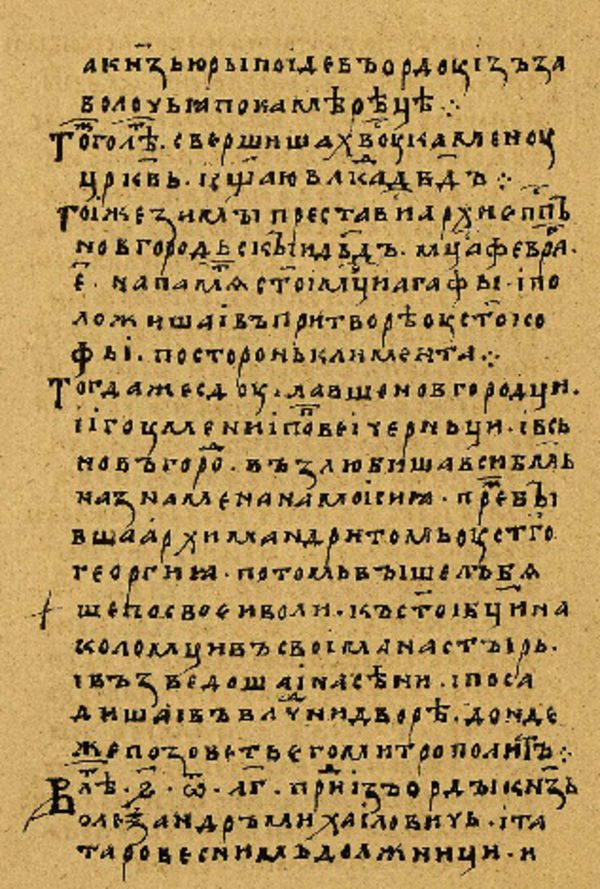 а кн҃ꙁь юрьі поіде въ ордоу іꙁъ ꙁа
волоуьꙗ по камѣ рѣцѣ ⁘
Тогоⷤ лѣⷮ. свершиша хв҃оу каменоу
црк҃вь. и сщ҃аю влⷣка дв҃дъ ⁘
Тоі же ꙁимы преставиⷭ архиеп҃пъ
новгородьскыи дв҃дъ. мц҃а феврⷶ.
е҃. на памⷮѧ ст҃оі мц҃и агафьі. і по
ложиша і въ притворѣ оу ст҃о со
фьі. по стороньклимента ⁘
Тогда же сдоумавше новгородци.
і ігоумени і поⷫве і черньци. і всь
новъгороⷣ. въꙁлюбиша вси бм҃ь
наꙁнамена на моісиꙗ. преⷤ бы
вша архимандритомь оу ст҃го
георгиꙗ. потомь вышелъ бѧ
ше по своеи воли. къ ст҃оі бц҃и на
коломци въ своі манастырь.
і въꙁведоша і на сѣни. і поса
диша і въ влⷣчни дворѣ. донде
же поꙁоветь его митрополитъ ⁘
В лѣⷮ. ҂ѕ҃. ѿ. л҃г. приⷣ іꙁъ орды кн҃ꙁь
олеѯандръ михаіловичь. і та
тарове с нимь должници. и